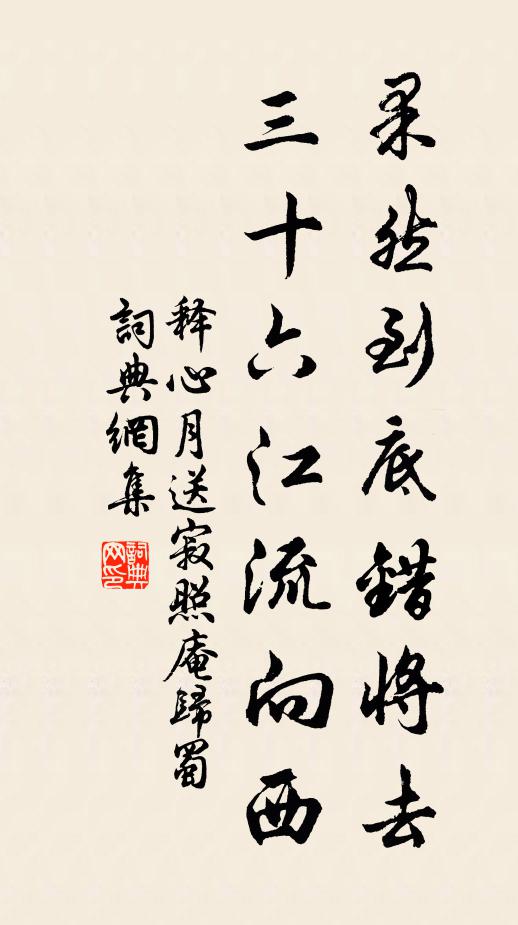 果然到底錯將去
三十六江流向西
释心月送寂照庵歸蜀
詞典網集
詞典网印